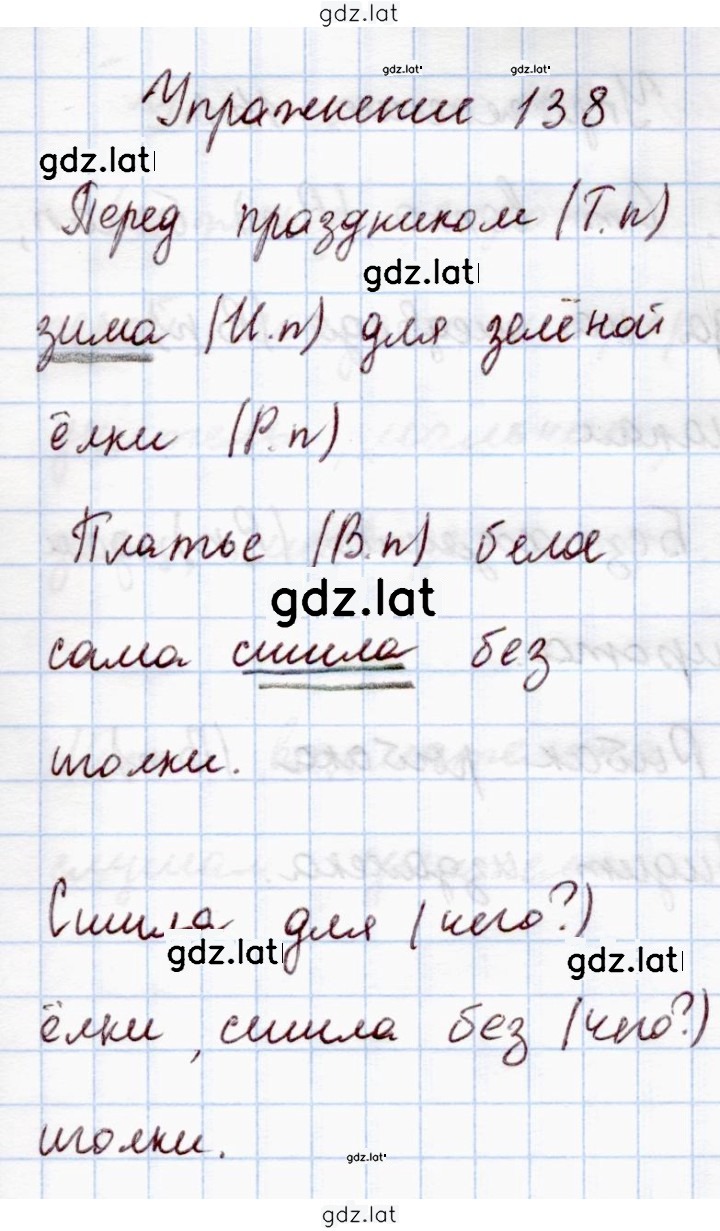 gdz.lat
gdz.lat gdz.lat
Упражнение 138
gdz.lat
Перед праздником (Т.п)
gdz.lat
зима (И.п) для зелёной
ёлки (Р.п)
Платье (В.п) белое
gdz.lat
сама сшила без
иголки.
Сшила для (чего?)
gdz.lat gdz.lat
ёлки, сшила без (чего?)
иголки.
gdz.lat
gdz.lat